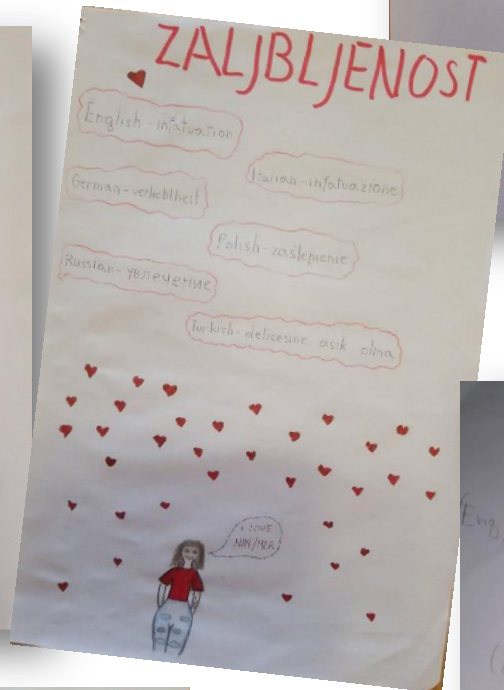 ZALJBLJENOST
English-infatuation
Italian-infatuazione
German-verliebtheit
Polish-zaślepienie
Russian-увлечение
Turkish-delicesine asik olma
I LOVE
HIM/HER
Eng